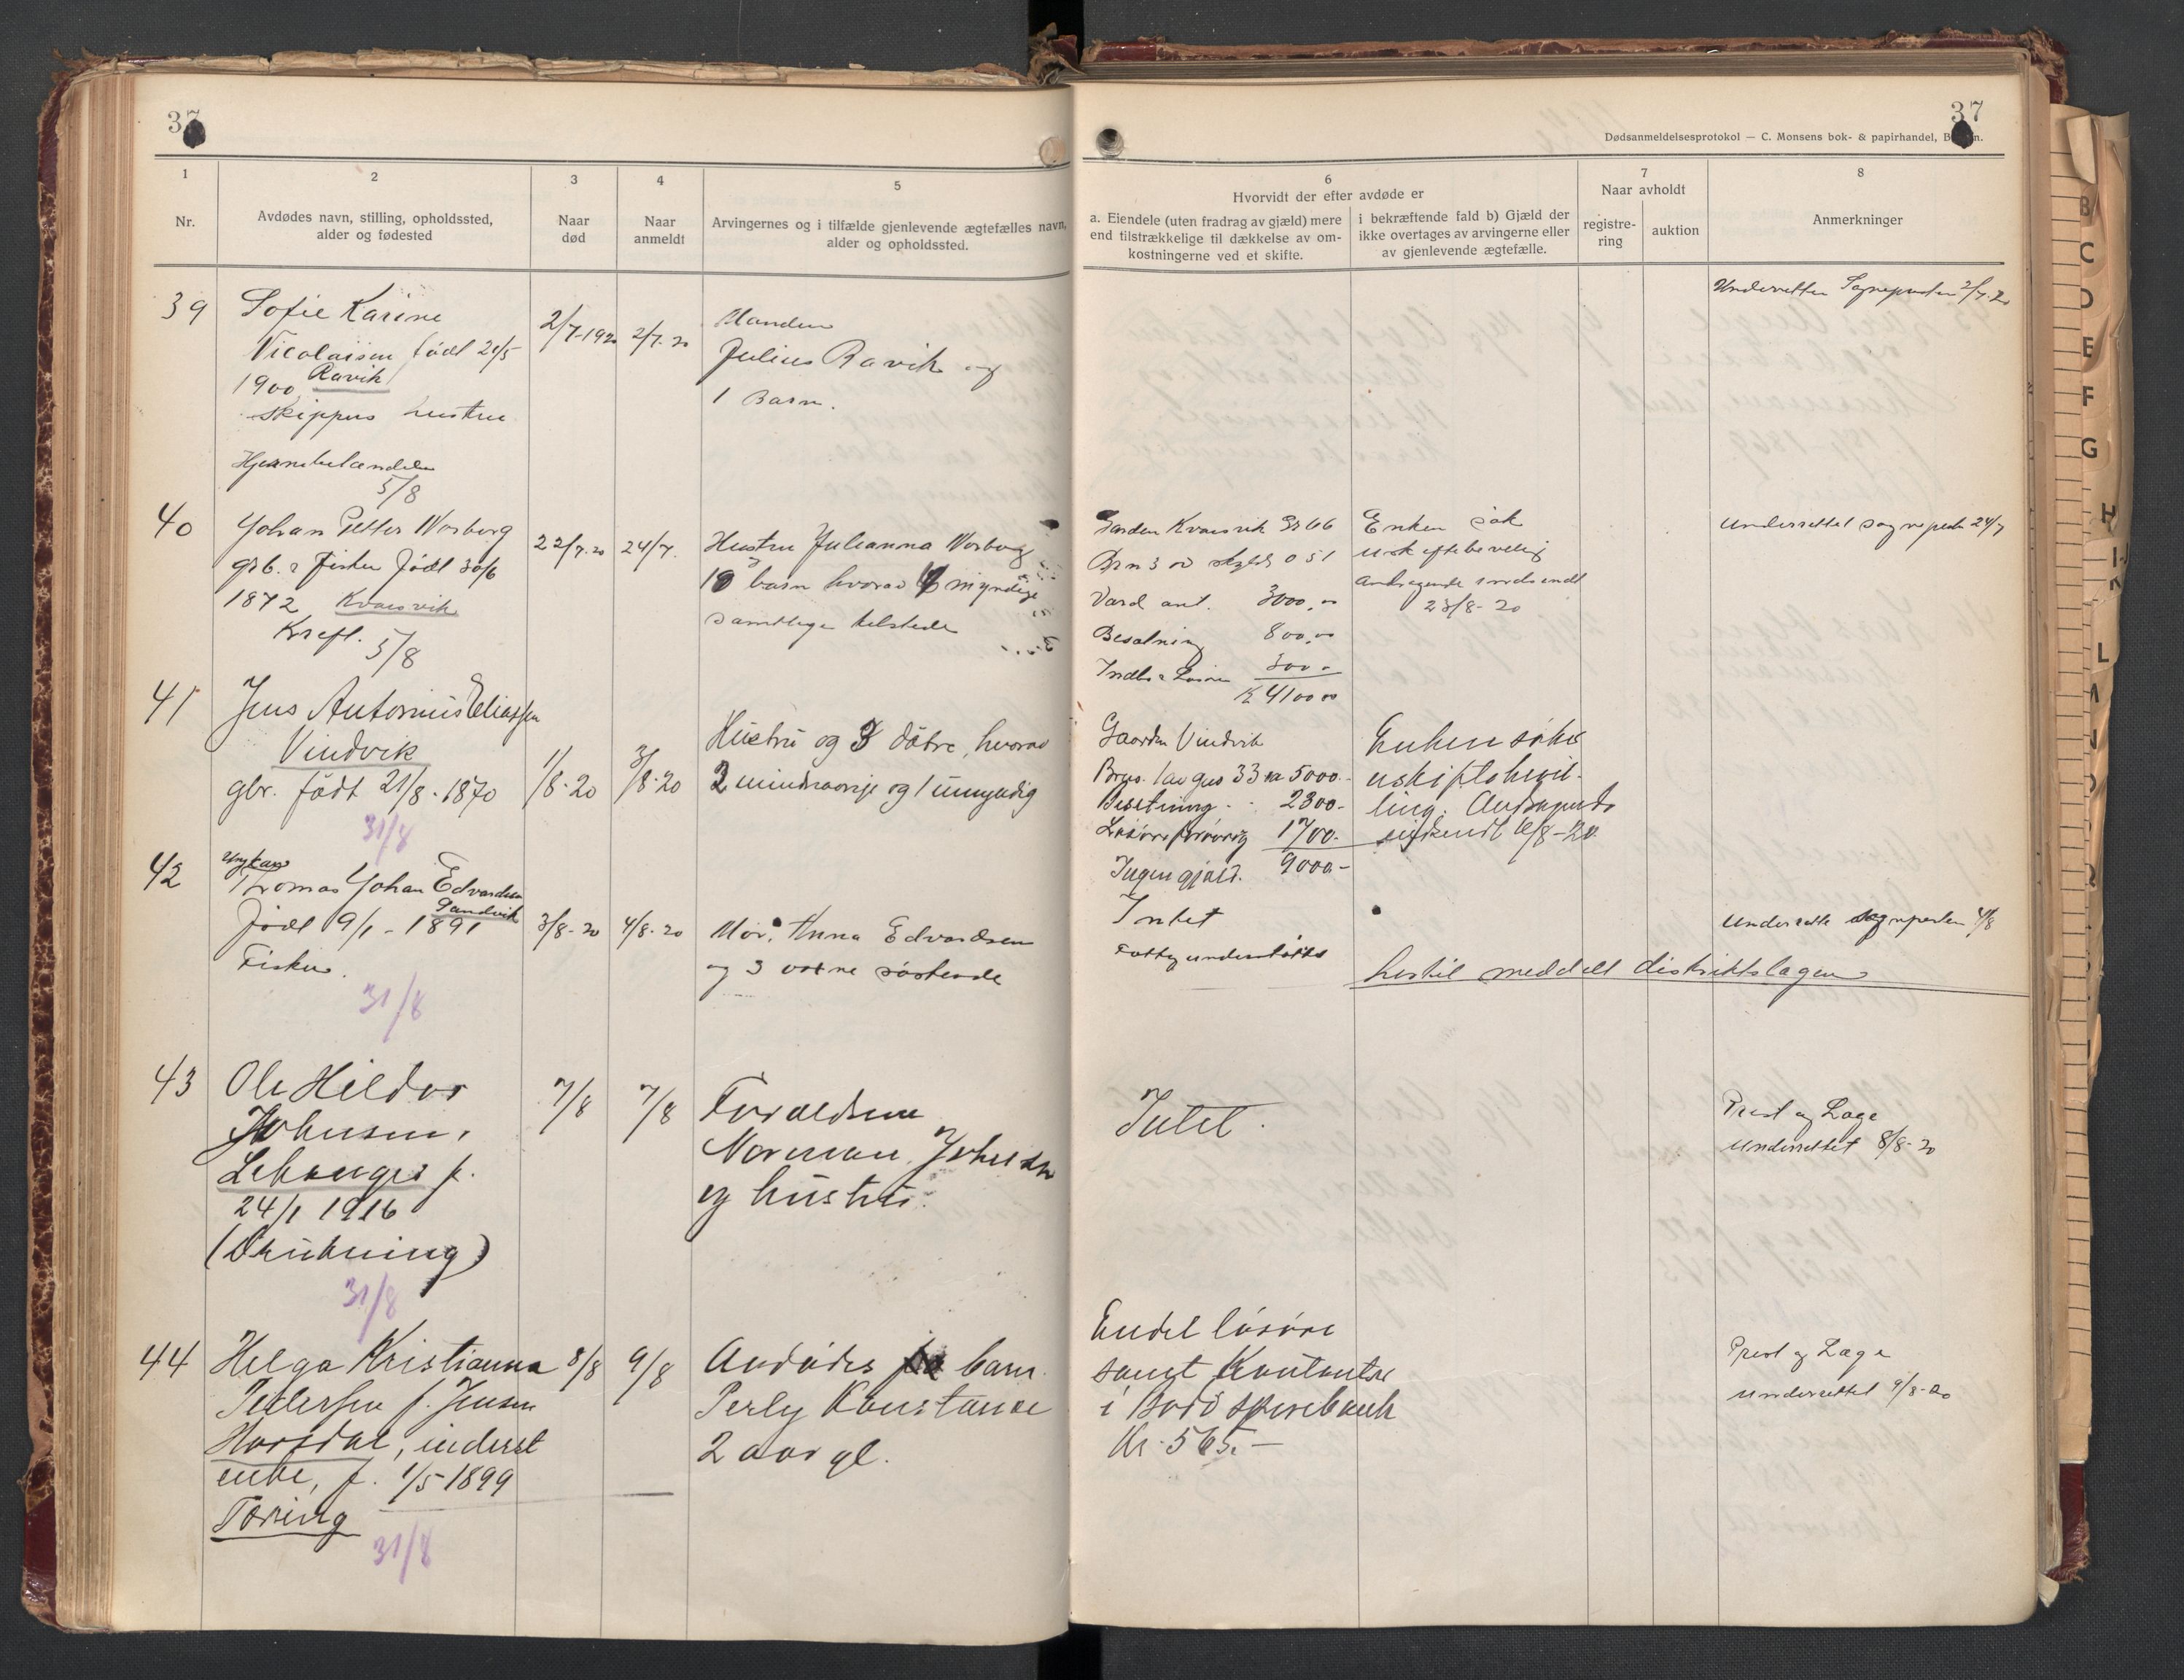 37
1
Nr.
2
Avdødes navn, stilling, opholdssted,
alder og fødested
3
Naar
død
4
Naar
anmeldt
5
Arvingernes og i tilfælde gjenlevende ægtefælles navn,
alder og opholdssted.
39
Sofie Karine
Nicolaisen født 20/5
1900 Ravik
skippers hustru
5/8
2/7-1920
2/7-20
Manden
Julius Ravik og
1 Barn.
40
Johan Petter Norberg
grb. & fisker født 30/6
1872 Kvarsvik
Kræft.
5/8
22/7.20
24/7.
Hustru Julianna Norberg
10 barn hvorav 4 myndige
samtlige tilstede
41
Jens Antonius Eliassen
Vindvik
gbr. født 21/8-1870
31/8
1/8-20
3/8-20
Hustru og 3 døtre, hvorav
2 mindreaarige og 1 umyndig
42
Ungkar
Thomas Johan Edvardsen
Sandvik
født 9/1-1891
Fisker.
31/8
3/8-20
4/8-20
Mor: Anna Edvardsen
og 3 voxne søskende
43
Ole Hildor
Johnsen,
f.
24/1 1916
(Drukning)
31/8
7/8
7/8
Forældrene
Norman Johnsen
og hustru.
44
Helga Kristianna
Pedersen f. Jensen
Horsdal, inderst
enke, f. 1/5 1899
Tæring
31/8
8/8
9/8
Avdødes barn
Perly Konstanse
2 aar gl.
37
Dødsanmeldelsesprotokol — C. Monsens bok- & papirhandel, B n.
6
Hvorvidt der efter avdøde er
a. Eiendele (uten fradrag av gjæld) mere
end tilstrækkelige til dækkelse av om-
kostningerne ved et skifte.
i bekræftende fald b) Gjæld der
ikke overtages av arvingerne eller
av gjenlevende ægtefælle.
7
Naar avholdt
registre-
ring
auktion
8
Anmerkninger
Underrettet Sognepresten 2/7-20
Garden Kvarsvik Gr 66
Brn 3 av skyld 0 51
Værd ant. 3000,00
Besætning 800,00
Indbo & Løsøre 300 -
Kr 4100 00
Enken søk
uskiftebevilg
andragende indsendt
23/8-20
Underrettet sognepresten 24/7
Gaarden Vindvik
Brns. 1 av gns 33 kr 5000.-
Besetning - - 2300-
Løsøre forøvrig 1700-
9000.-
Ingen gjæld.
Enken søke
uskiftebevil-
ling. Andragende
indsendt 6/8-20
Intet
Fattigunderstøttet
Underrettet sognepresten 4/8
hertil meddelt distriktslægen
Intet.
Prest og Læge
underrettet 8/8-20
Endel løsøre
samt Kontanter
i Bodø sparebank
Kr. 565.-
Prest og Læge
underrettet 9/8-20
B
C
D
E
F
G
H
L